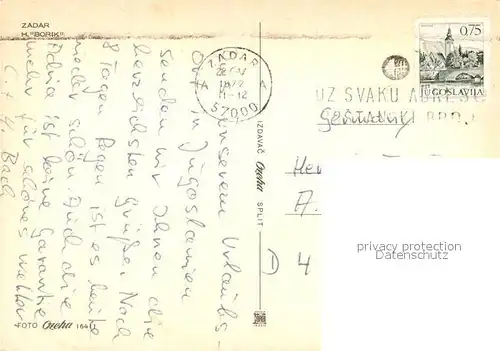 ZADAR
H. "BORIK"
ZADAR
1972
11-12
57000
0,75
JUGOSLAVIJA
UZ SVAKU ADRESU
Germany
unserem Urlaubs-
Ort in Jugoslawien
senden wir Ihnen die
herzlichsten Grüße. Nach
8 Tagen Regen ist es heute
wieder schön. Auch die
Adria ist keine Garantie
mehr für schönes Wetter
Bach
IZDAVAČ Oreha SPLIT
FOTO Oreha 1641
A.
D 4
privacy protection
oldthing.de
oldthing.de
oldthing.de